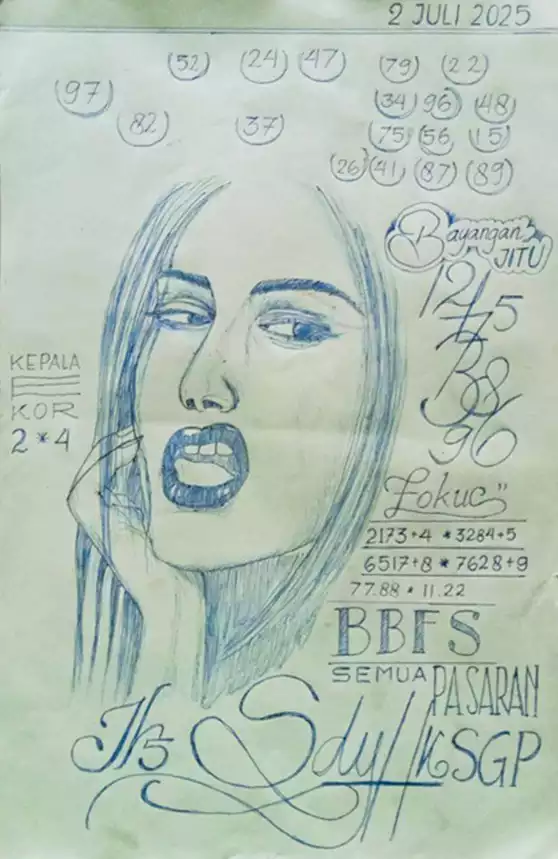 2 JULI 2025
(52) (24) (47) (79) (22)
(97) (34) (96) (48)
(82) (37) (75) (56) (15)
(26) (41) (87) (89)
Bayangan
JITU
KEPALA
KOR
2 * 4
96
Fokus"
2173+4 * 3284+5
6517+8 * 7628+9
77.88 * 11.22
BBFS
SEMUA PASARAN
Sdy HK SGP